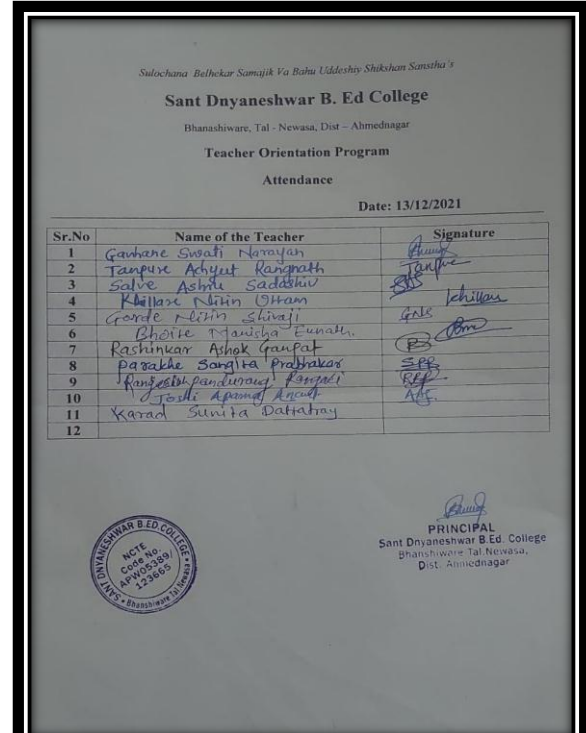 Sulochana Belhekar Samajik Va Bahu Uddeshiy Shikshan Sanstha's
Sant Dnyaneshwar B. Ed College
Bhanashiware, Tal - Newasa, Dist – Ahmednagar
Teacher Orientation Program
Attendance
Date: 13/12/2021
Sr.No Name of the Teacher Signature
1 Gavhane Swati Narayan
2 Tanpure Achyut Rangnath Tanpure
3 Salve Ashru Sadashiv
4 Khillare Nitin Uttam Khillare
5 Gorde Nitin Shivaji GNS
6 Bhoite Manisha Eknath
7 Rashinkar Ashok Ganpat
8 Parakhe Sangita Prabhakar SPP
9 Pandurang
10 Joshi Aparna
11 Karad Sunita Dattatray
12
PRINCIPAL
Sant Dnyaneshwar B.Ed. College
Bhanshiware Tal. Newasa,
Dist. Ahmednagar
SANT DNYANESHWAR B.ED.COLLEGE
Bhanshiware Tal. Newasa
NCTE
Code No.
APW05389/
123665